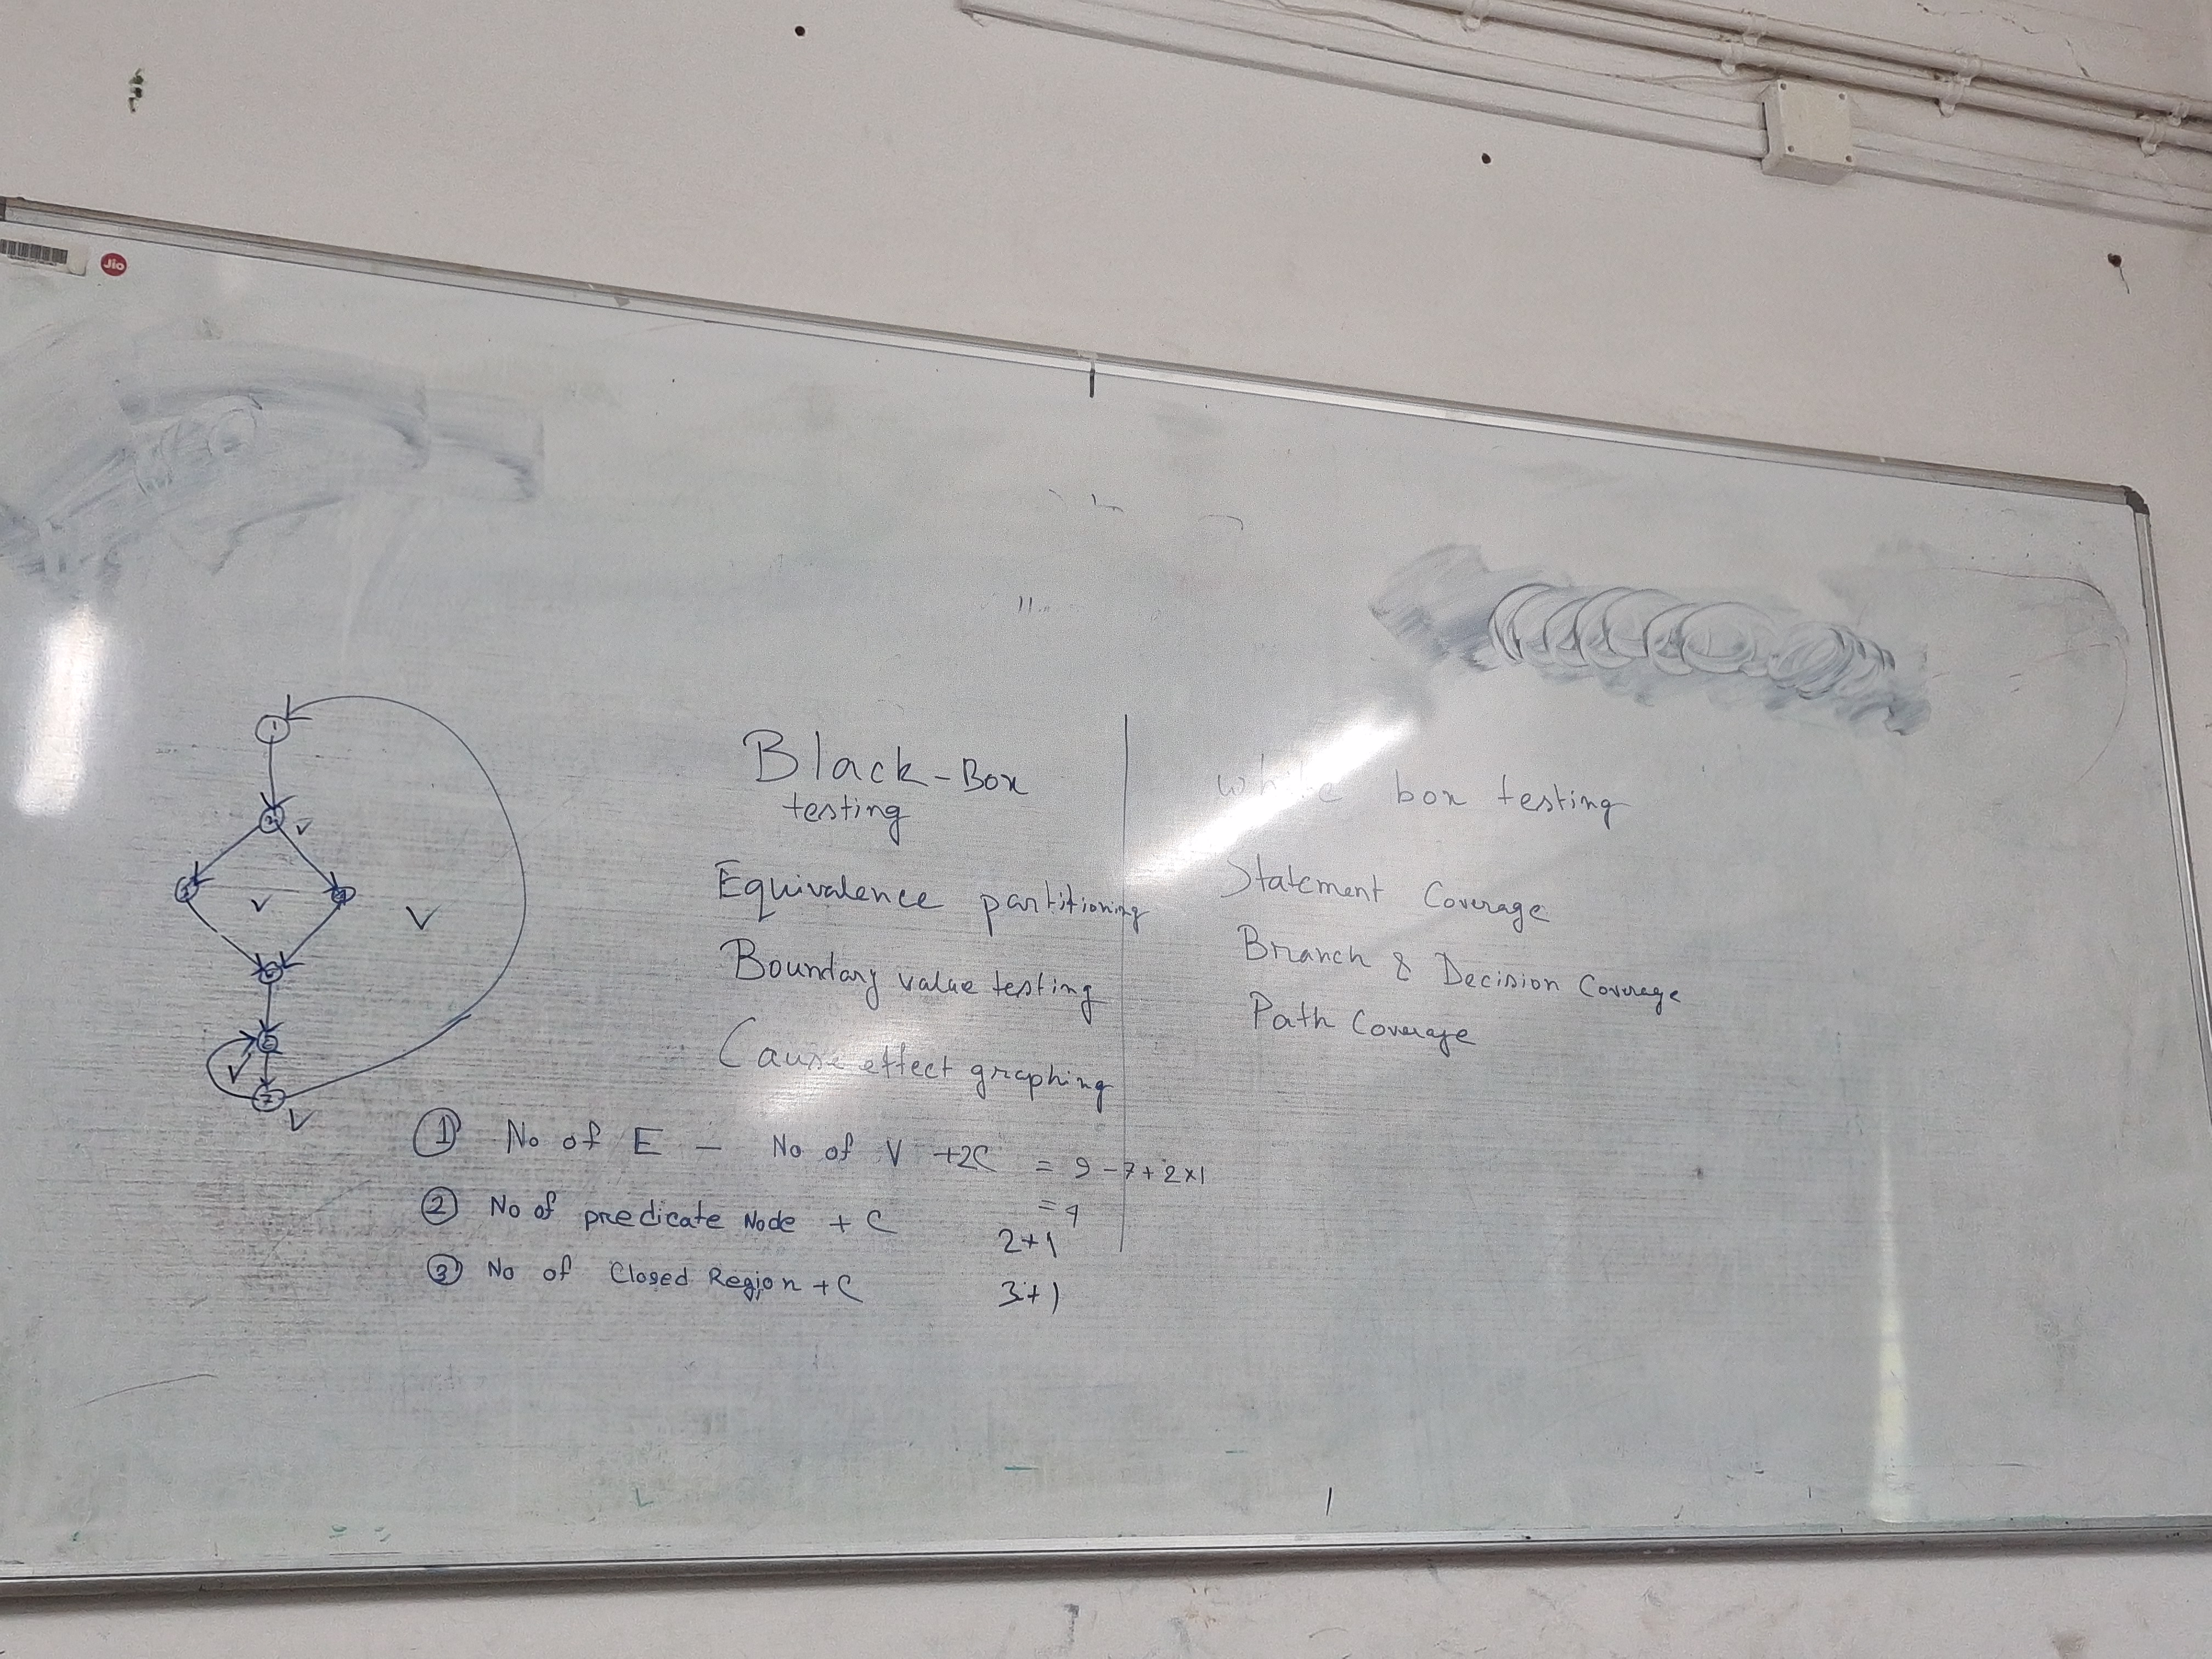 Jio
1
2
3
4
5
6
7
Black-Box
testing
Equivalence partitioning
Boundary value testing
Cause effect graphing
white box testing
Statement Coverage
Branch & Decision Coverage
Path Coverage
① No of E - No of V +2C = 9-7+2×1
= 4
② No of predicate Node + C 2+1
③ No of Closed Region + C 3+1